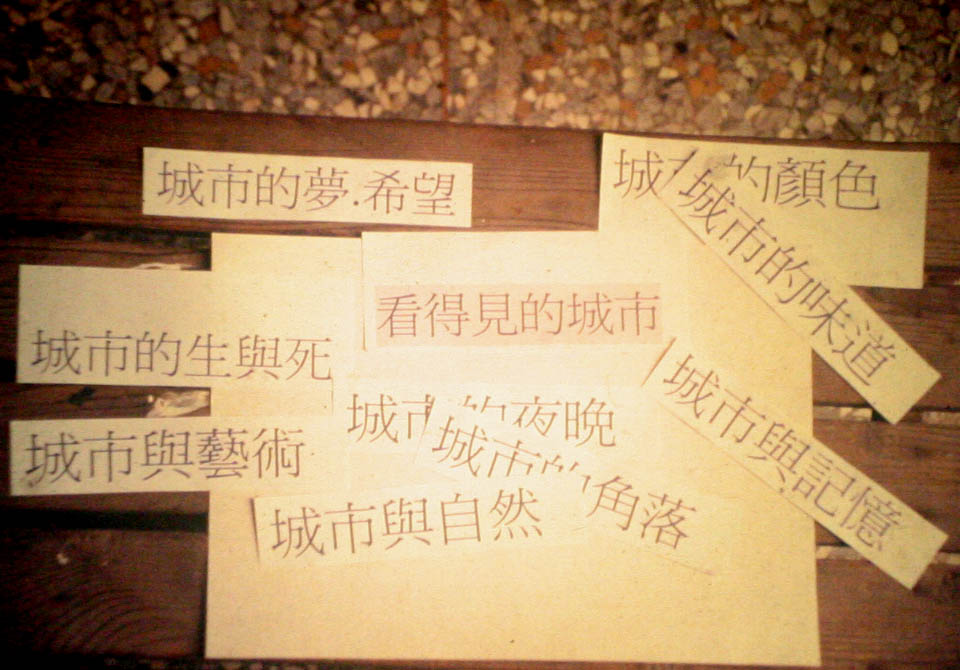 城市的夢.希望
城市的顏色
城市的味道
看得見的城市
城市的生與死
城市與記憶
城市的夜晚
城市與藝術
城市的角落
城市與自然